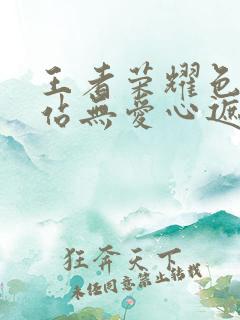 王者荣耀色
佔無愛心遮
狂奔天下
未经同意禁止转载